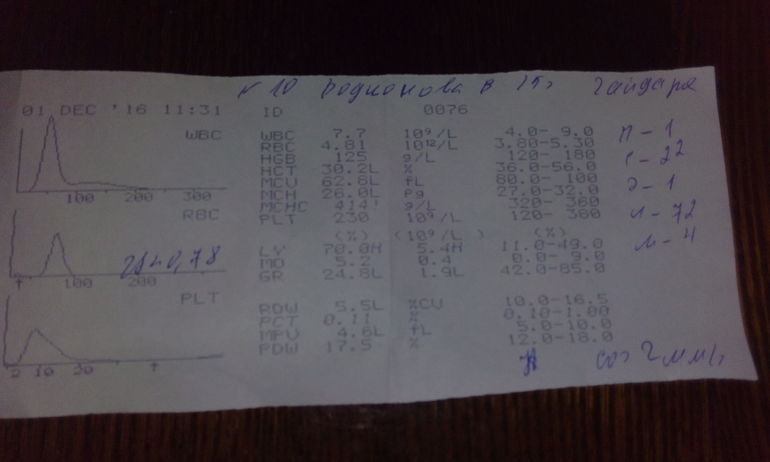 Гайдара
01 DEC '16 11:31 ID 0076
WBC
WBC 7.7 10⁹/L 4.0- 9.0 П - 1
RBC 4.81 10¹²/L 3.80-5.30
HGB 125 g/L 120- 180 С - 22
HCT 30.2L % 36.0-56.0
MCV 62.6L fL 80.0- 100 Э - 1
MCH 26.0L Pg 27.0-32.0
MCHC 414! g/L 320- 360
PLT 230 10⁹/L 120- 380 Л - 72
100 200 300
RBC
(%) (10⁹/L ) (%)
LY 70.0H 5.4H 11.0-49.0 М - 4
MO 5.2 0.4 0.0- 9.0
GR 24.8L 1.9L 42.0-85.0
0,78
100 200
PLT
RDW 5.5L %CV 10.0-16.5
PCT 0.11 % 0.10-1.00
MPV 4.6L fL 5.0-10.0
PDW 17.5 % 12.0-18.0
2 10 20
соэ 2 мм/